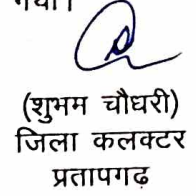 गया।
(शुभम चौधरी)
जिला कलक्टर
प्रतापगढ़